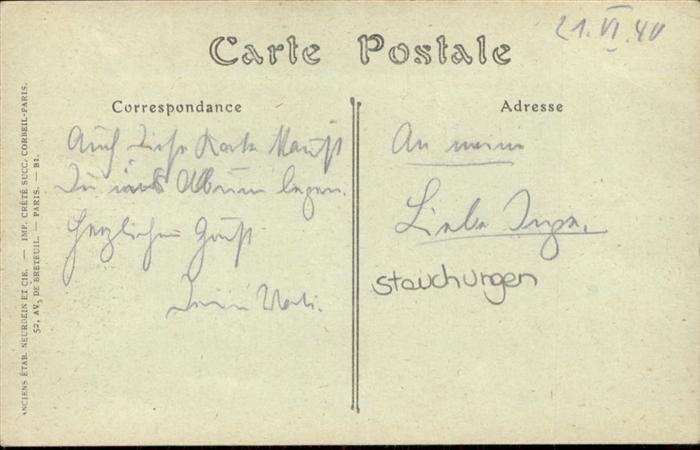 Carte Postale
21.VI.40
Correspondance
Auch diese Karte kannst
Du ins Album legen.
Herzlichen Gruß
Dein Vati.
Adresse
An meine
Liebe Inge.
stauchungen
ANCIENS ÉTAB. NEURDEIN ET CIE. — IMP. CRÉTÉ SUCC. CORBEIL-PARIS.
52, AV. DE BRETEUIL. — PARIS. — B1.